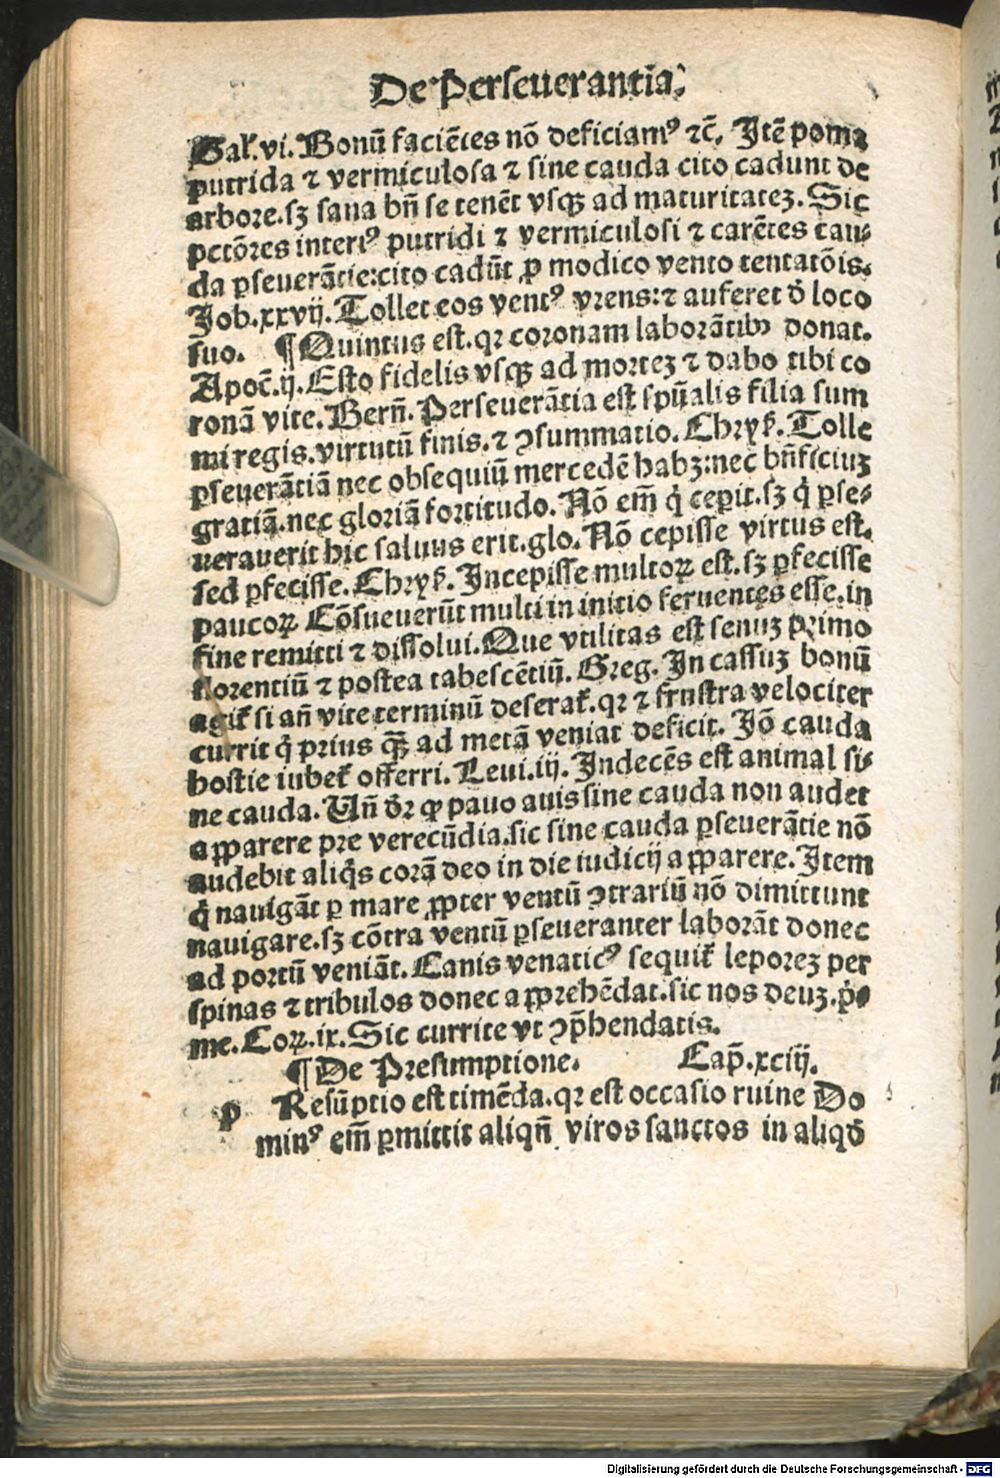 De Perseuerantia.
Gal̃.vi. Bonū faciētes nō deficiamꝰ ⁊c̃. Itē poma
putrida ⁊ vermiculosa ⁊ sine cauda cito cadunt de
arbore.sꝫ sana bn̄ se tenēt vsqꝫ ad maturitatez. Sic
pctōres interiꝰ putridi ⁊ vermiculosi ⁊ carētes cau⸗
da ꝑseuerātie:cito cadūt ꝓ modico vento tentatōis.
Job.xxvij. Tollet eos ventꝰ vrens:⁊ auferet d̄ loco
suo. ¶ Quintus est.qꝛ coronam laborātibꝰ donat.
Apoc̄.ij. Esto fidelis vsqꝫ ad mortez ⁊ dabo tibi co
ronā vite. Bern̄. Perseuerātia est spūalis filia sum
mi regis.virtutū finis.⁊ ↄsummatio. Chryß. Tolle
ꝑseuerātiā nec obsequiū mercedē habꝫ:nec bn̄ficiuz
gratiā.nec gloriā fortitudo. Nō em̄ q̇ cepit.sꝫ q̇ ꝑse⸗
uerauerit hic saluus erit.glo. Nō cepisse virtus est.
sed ꝑfecisse. Chryß. Incepisse multoꝝ est.sꝫ ꝑfecisse
paucoꝝ Cōsueuerūt multi in initio feruentes esse.in
fine remitti ⁊ dissolui. Que vtilitas est senuz primo
florentiū ⁊ postea tabescētiū. Greg. In cassuz bonū
agit̃ si an̄ vite terminū deserat̃.qꝛ ⁊ frustra velociter
currit q̇ prius qꝫ̄ ad metā veniat deficit. Iō cauda
hostie iubet̃ offerri. Leui.iij. Indecēs est animal si⸗
ne cauda. Un̄ d̄ꝛ ꝙ pauo auis sine cauda non audet
apparere pre verecūdia.sic sine cauda ꝑseuerātie nō
audebit aliq̇s corā deo in die iudicij apparere. Item
q̇ nauigāt ꝑ mare ꝓpter ventū ↄtrariū nō dimittunt
nauigare.sꝫ cōtra ventū ꝑseueranter laborāt donec
ad portū veniāt. Canis venaticꝰ sequit̃ leporez per
spinas ⁊ tribulos donec apprehēdat.sic nos deuz.p̄⸗
me. Coꝝ.ix. Sic currite vt ↄp̄hendatis.
¶ De Presumptione. Cap̄.xciij.
p Resūptio est timēda.qꝛ est occasio ruine Do
minꝰ em̄ ꝑmittit aliqn̄ viros sanctos in aliqd̄
Digitalisierung gefördert durch die Deutsche Forschungsgemeinschaft - DFG